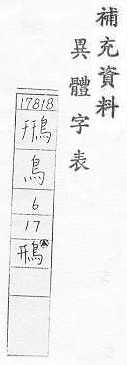 補充資料
異體字表
17818
鳽
鳥
6
17
鳽